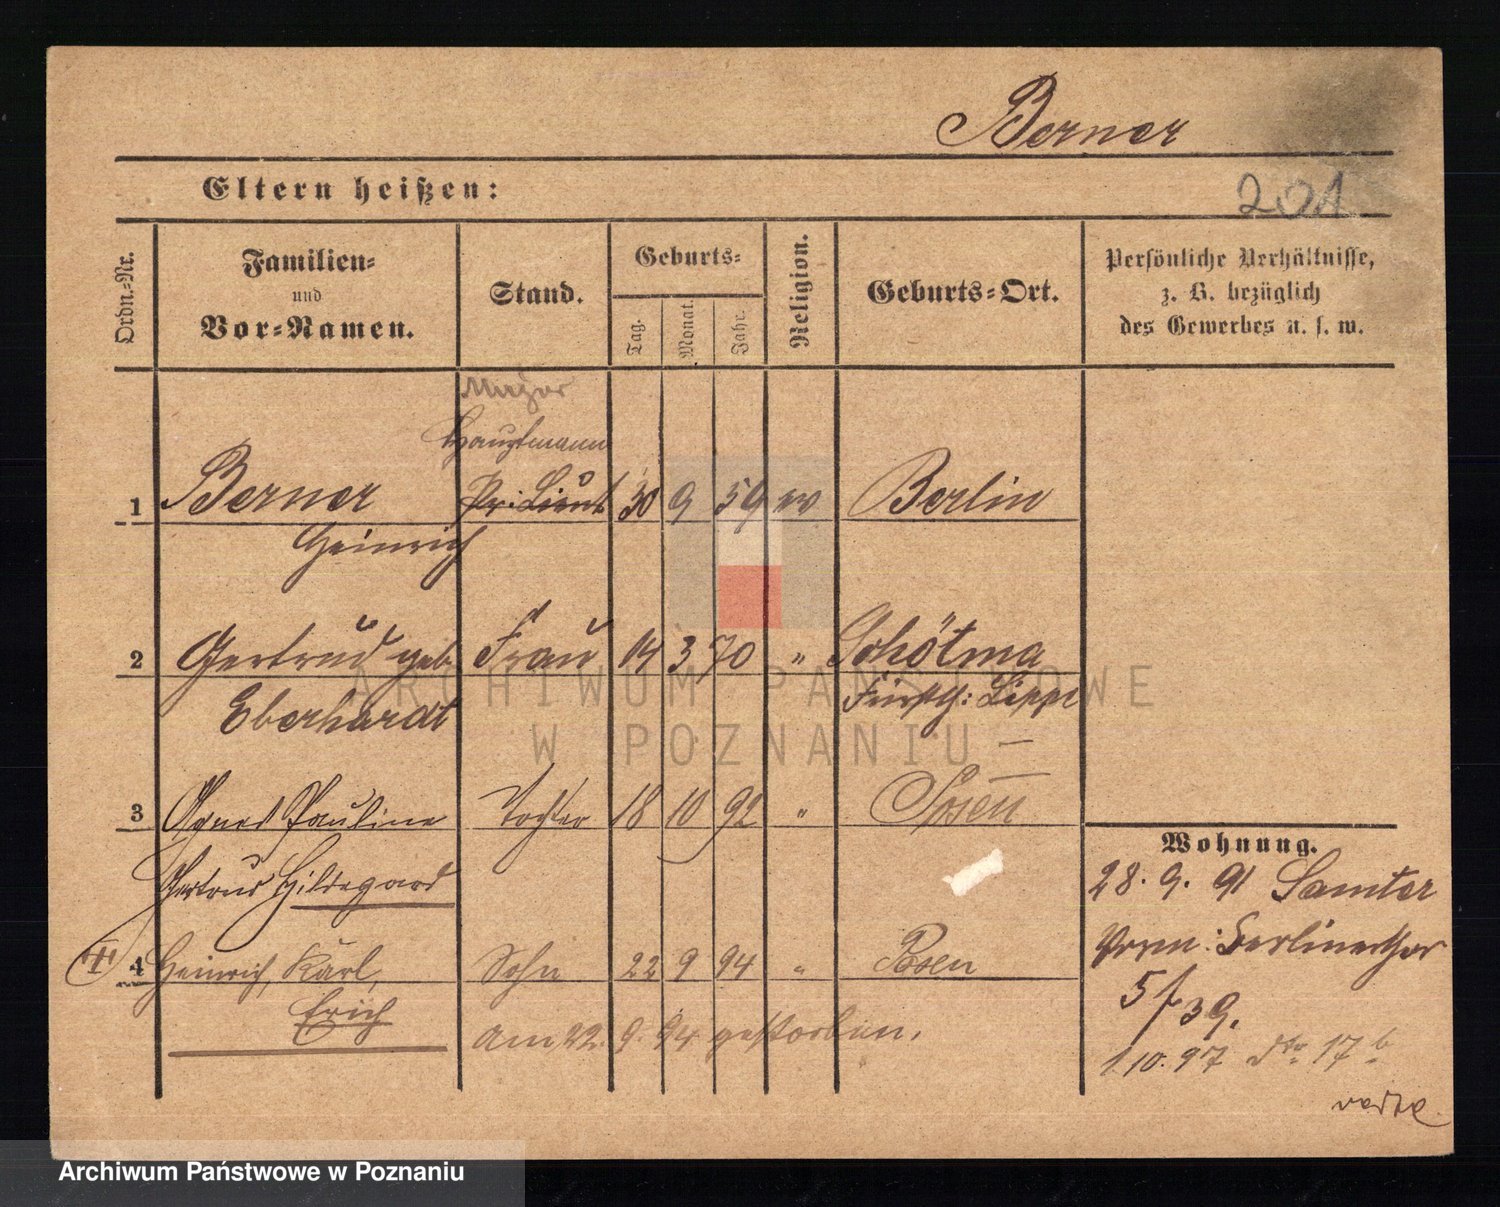 Berner
Eltern heißen:
201
Ordn.-Nr.
Familien-
und
Vor-Namen.
Stand.
Geburts-
Tag.
Monat.
Jahr.
Religion.
Geburts-Ort.
Persönliche Verhältnisse,
z. B. bezüglich
des Gewerbes u. s. w.
Major
Hauptmann
1 Berner Pr. Lieut 30 9 59 ev Berlin
Heinrich
2 Gertrud geb. Frau 14 3 70 " Schötmar
Eberhardt Fürsth: Lippe
3 Agnes Pauline Tochter 18 10 92 " Posen
Gertrud Hildegard
4 Heinrich, Karl, Sohn 22 9 94 " Posen
Erich
am 22. 9. 94 gestorben.
Wohnung.
28. 9. 91 Samter
Verm: Berlinerthor
5 / 39.
1.10.97 dto 17b
verte
ARCHIWUM PAŃSTWOWE
W POZNANIU
Archiwum Państwowe w Poznaniu